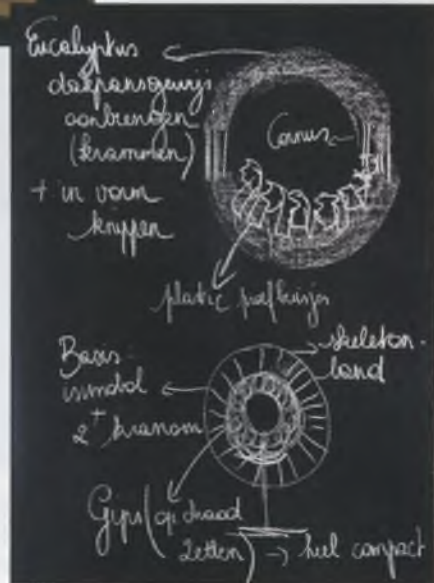 Eucalyptus
dakpansgewijs
aanbrengen
(krammen)
+ in vorm
knippen
Cornus
plastic proefbuisjes
skeleton-
Basis:
2
Gips (op draad
zetten) → heel compact